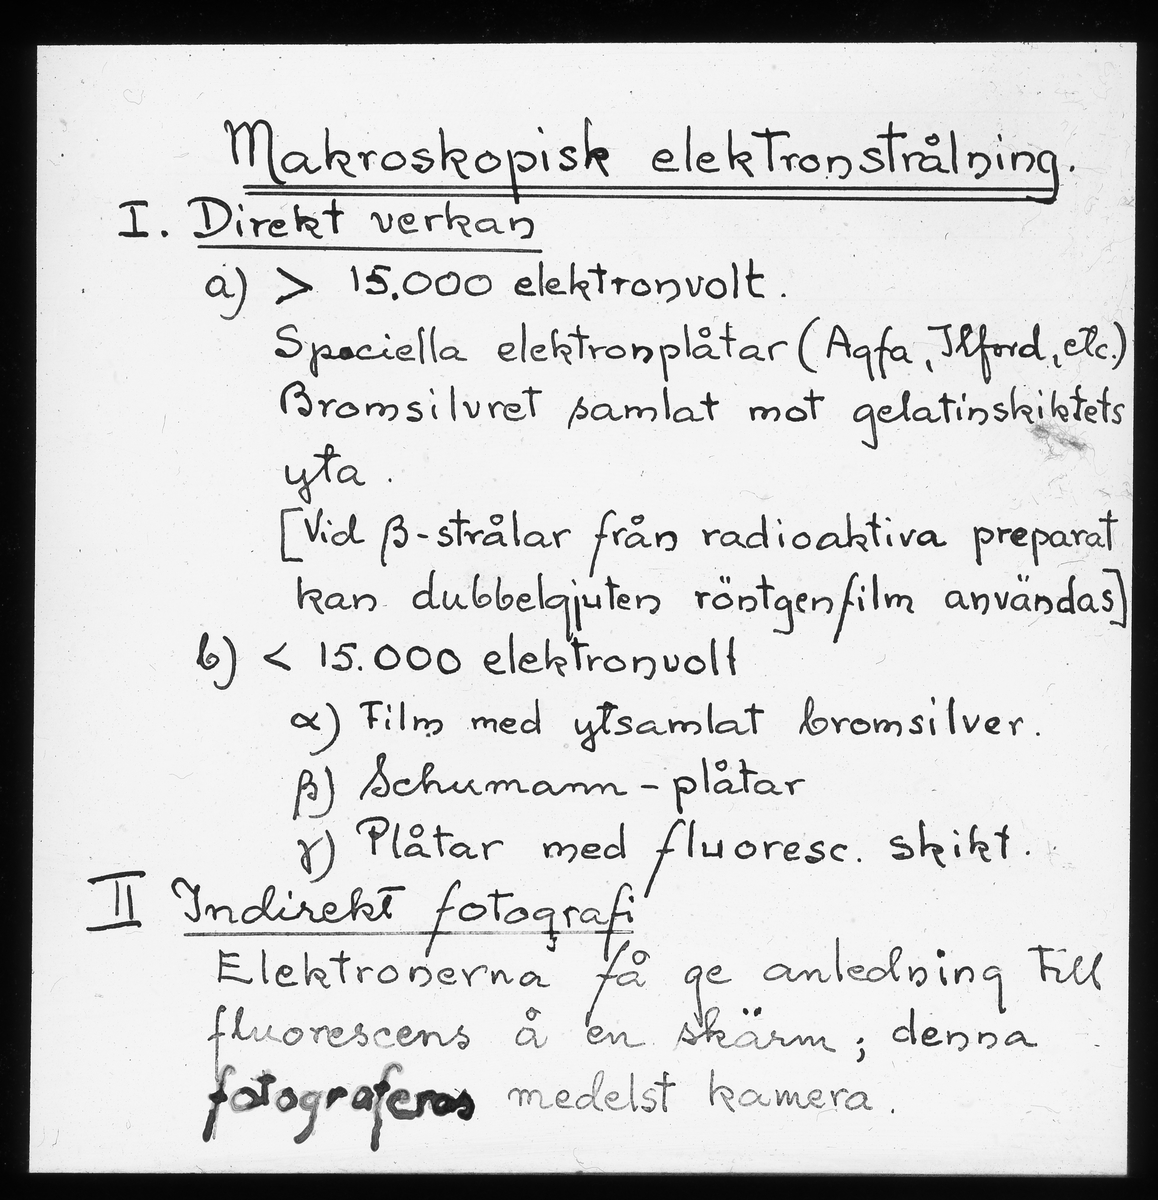 Makroskopisk elektronstrålning.
I. Direkt verkan
a) > 15.000 elektronvolt.
Speciella elektronplåtar (Agfa, Ilford, etc.)
Bromsilvret samlat mot gelatinskiktets
yta.
[Vid β-strålar från radioaktiva preparat
kan dubbelgjuten röntgenfilm användas]
b) < 15.000 elektronvolt
α) Film med ytsamlat bromsilver.
β) Schumann-plåtar
γ) Plåtar med fluoresc. skikt.
II Indirekt fotografi
Elektronerna få ge anledning till
fluorescens å en skärm; denna
fotograferas medelst kamera.